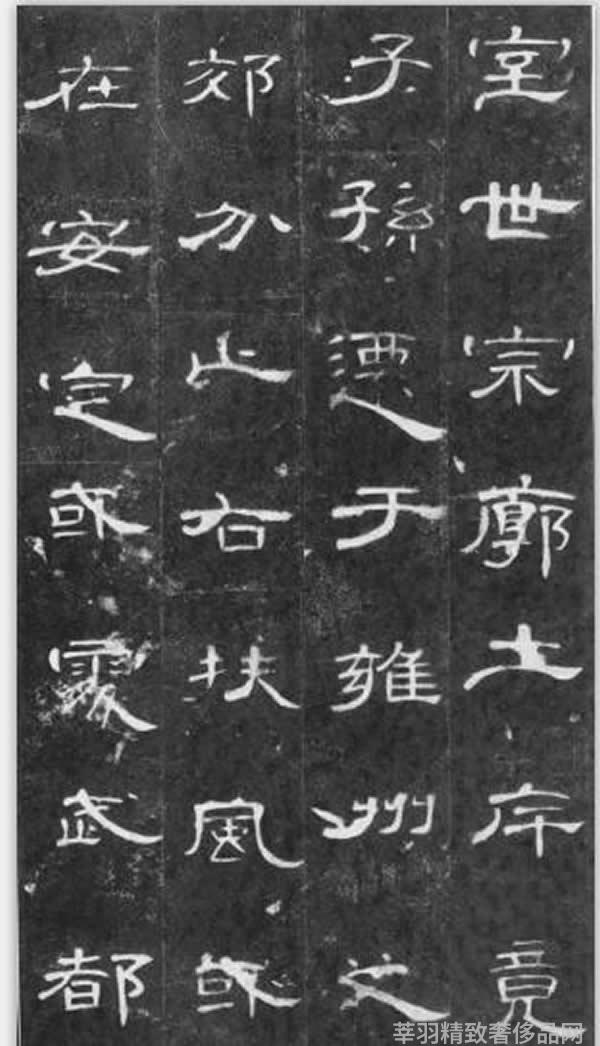 室世宗廓土斥竟
子孫遷于雍州之
郊分止右扶風或
在安定或處武都
莘羽精致奢侈品网